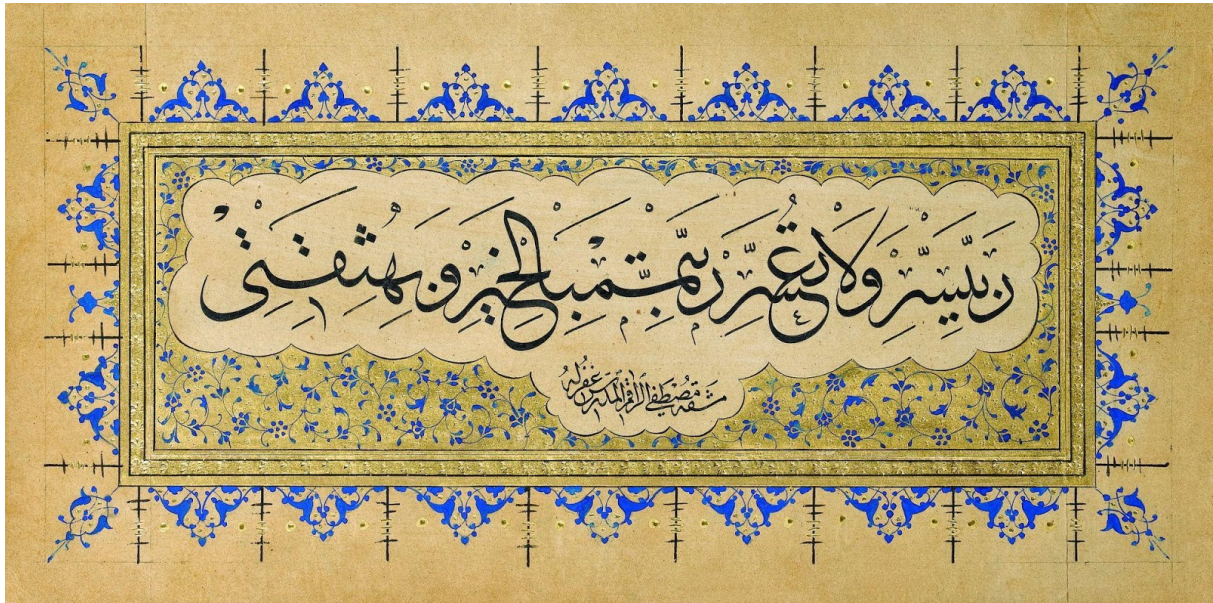 رَبِّ يَسِّرْ وَلَا تُعَسِّرْ رَبِّ تَمِّمْ بِالْخَيْرِ وَبِهِ ثِقَتِي
مشقه مصطفى الراقم المدرس غفر له